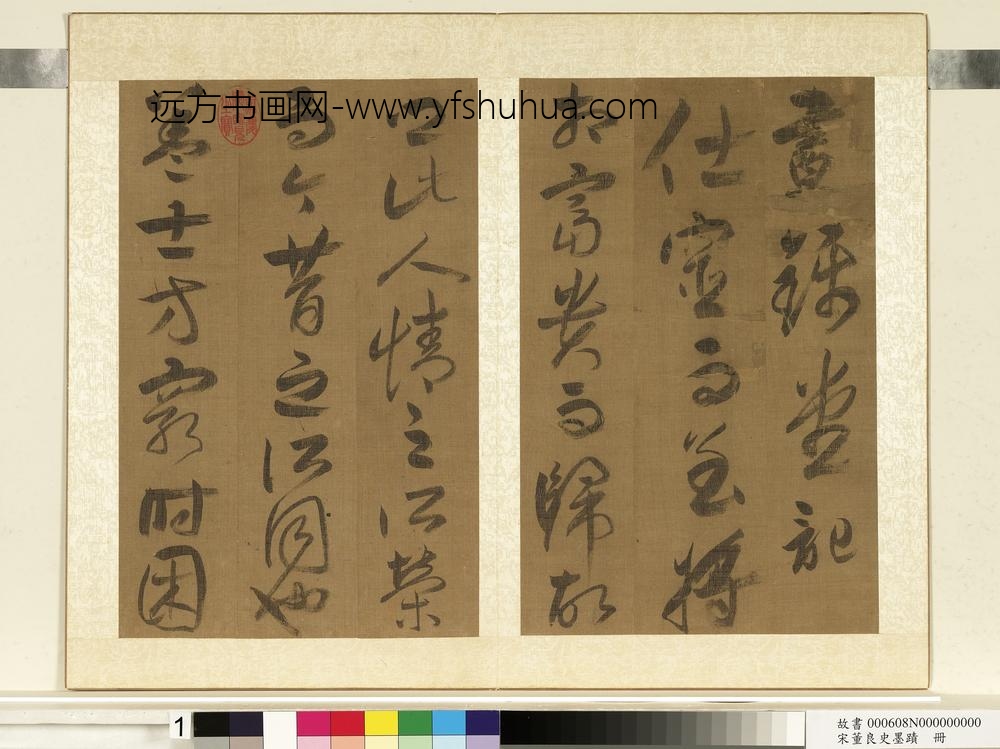 晝錦堂記
仕宦而至將
相富貴而歸故
鄉此人情之所榮
而今昔之所同也
蓋士方窮時困
远方书画网-www.yfshuhua.com
1
故書 000608N000000000
宋董良史墨蹟 冊